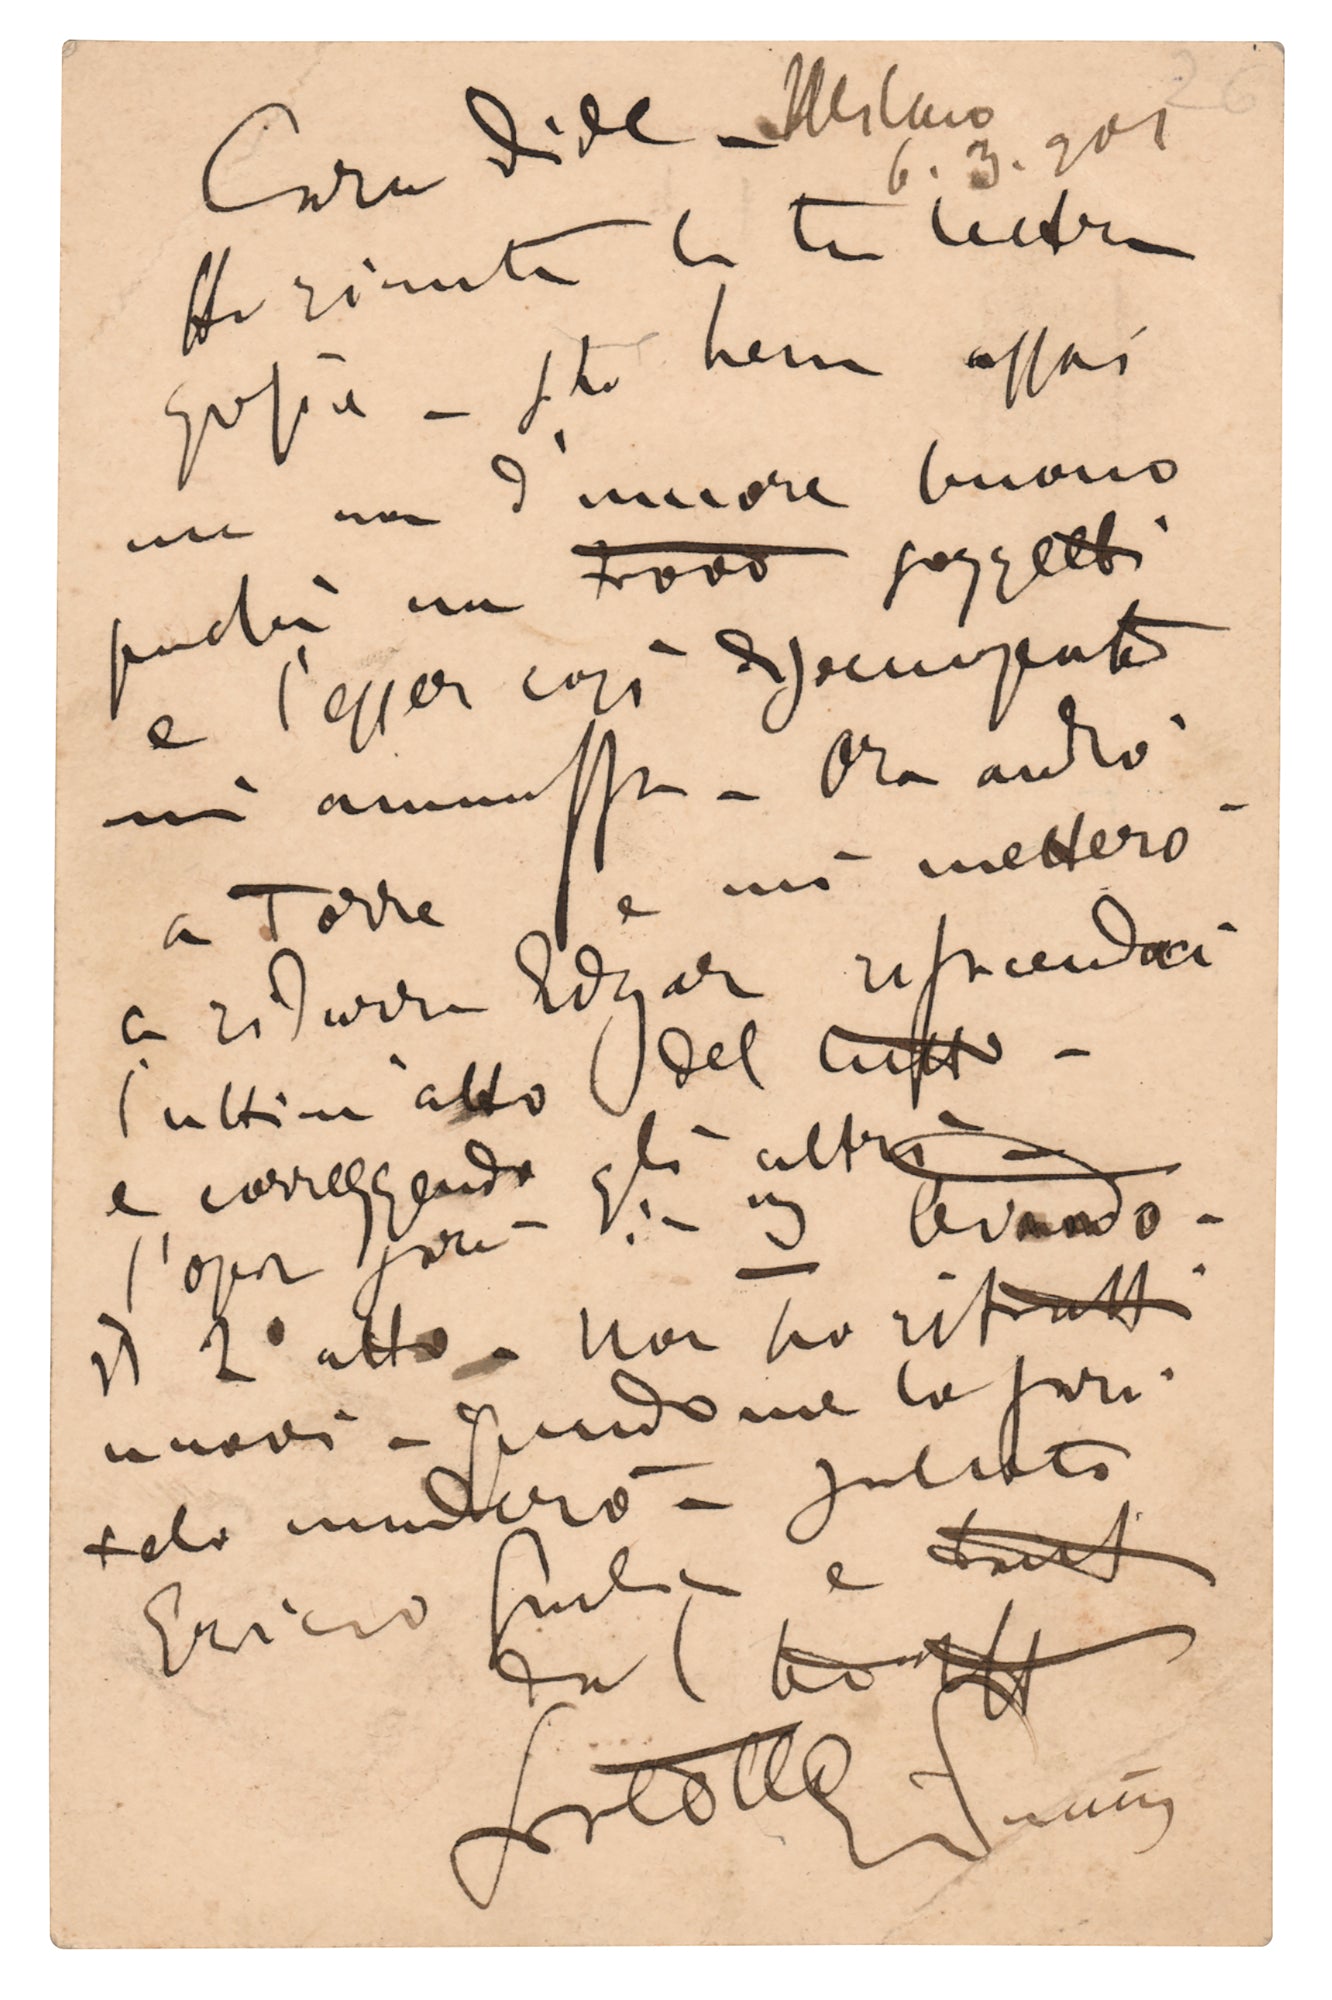 26
Cara Dide - Milano
6.3.901
Ho ricevuta la tua lettera
grazie - Sto bene assai
ma non d'umore buono
perchè non trovo soggetti
e l'esser così disoccupato
mi ammuffa - Ora andrò
a Torre e mi metterò
a ridurre Edgar rifacendoci
l'ultim'atto del tutto -
e correggendo gli altri -
l'opera sarà in 3 levando
il 2º atto - Non ho ritratti
nuovi - quando me lo farò
telo manderò - salutato
Enrico Giulia e
dal tuo aff
fratello Giacomo